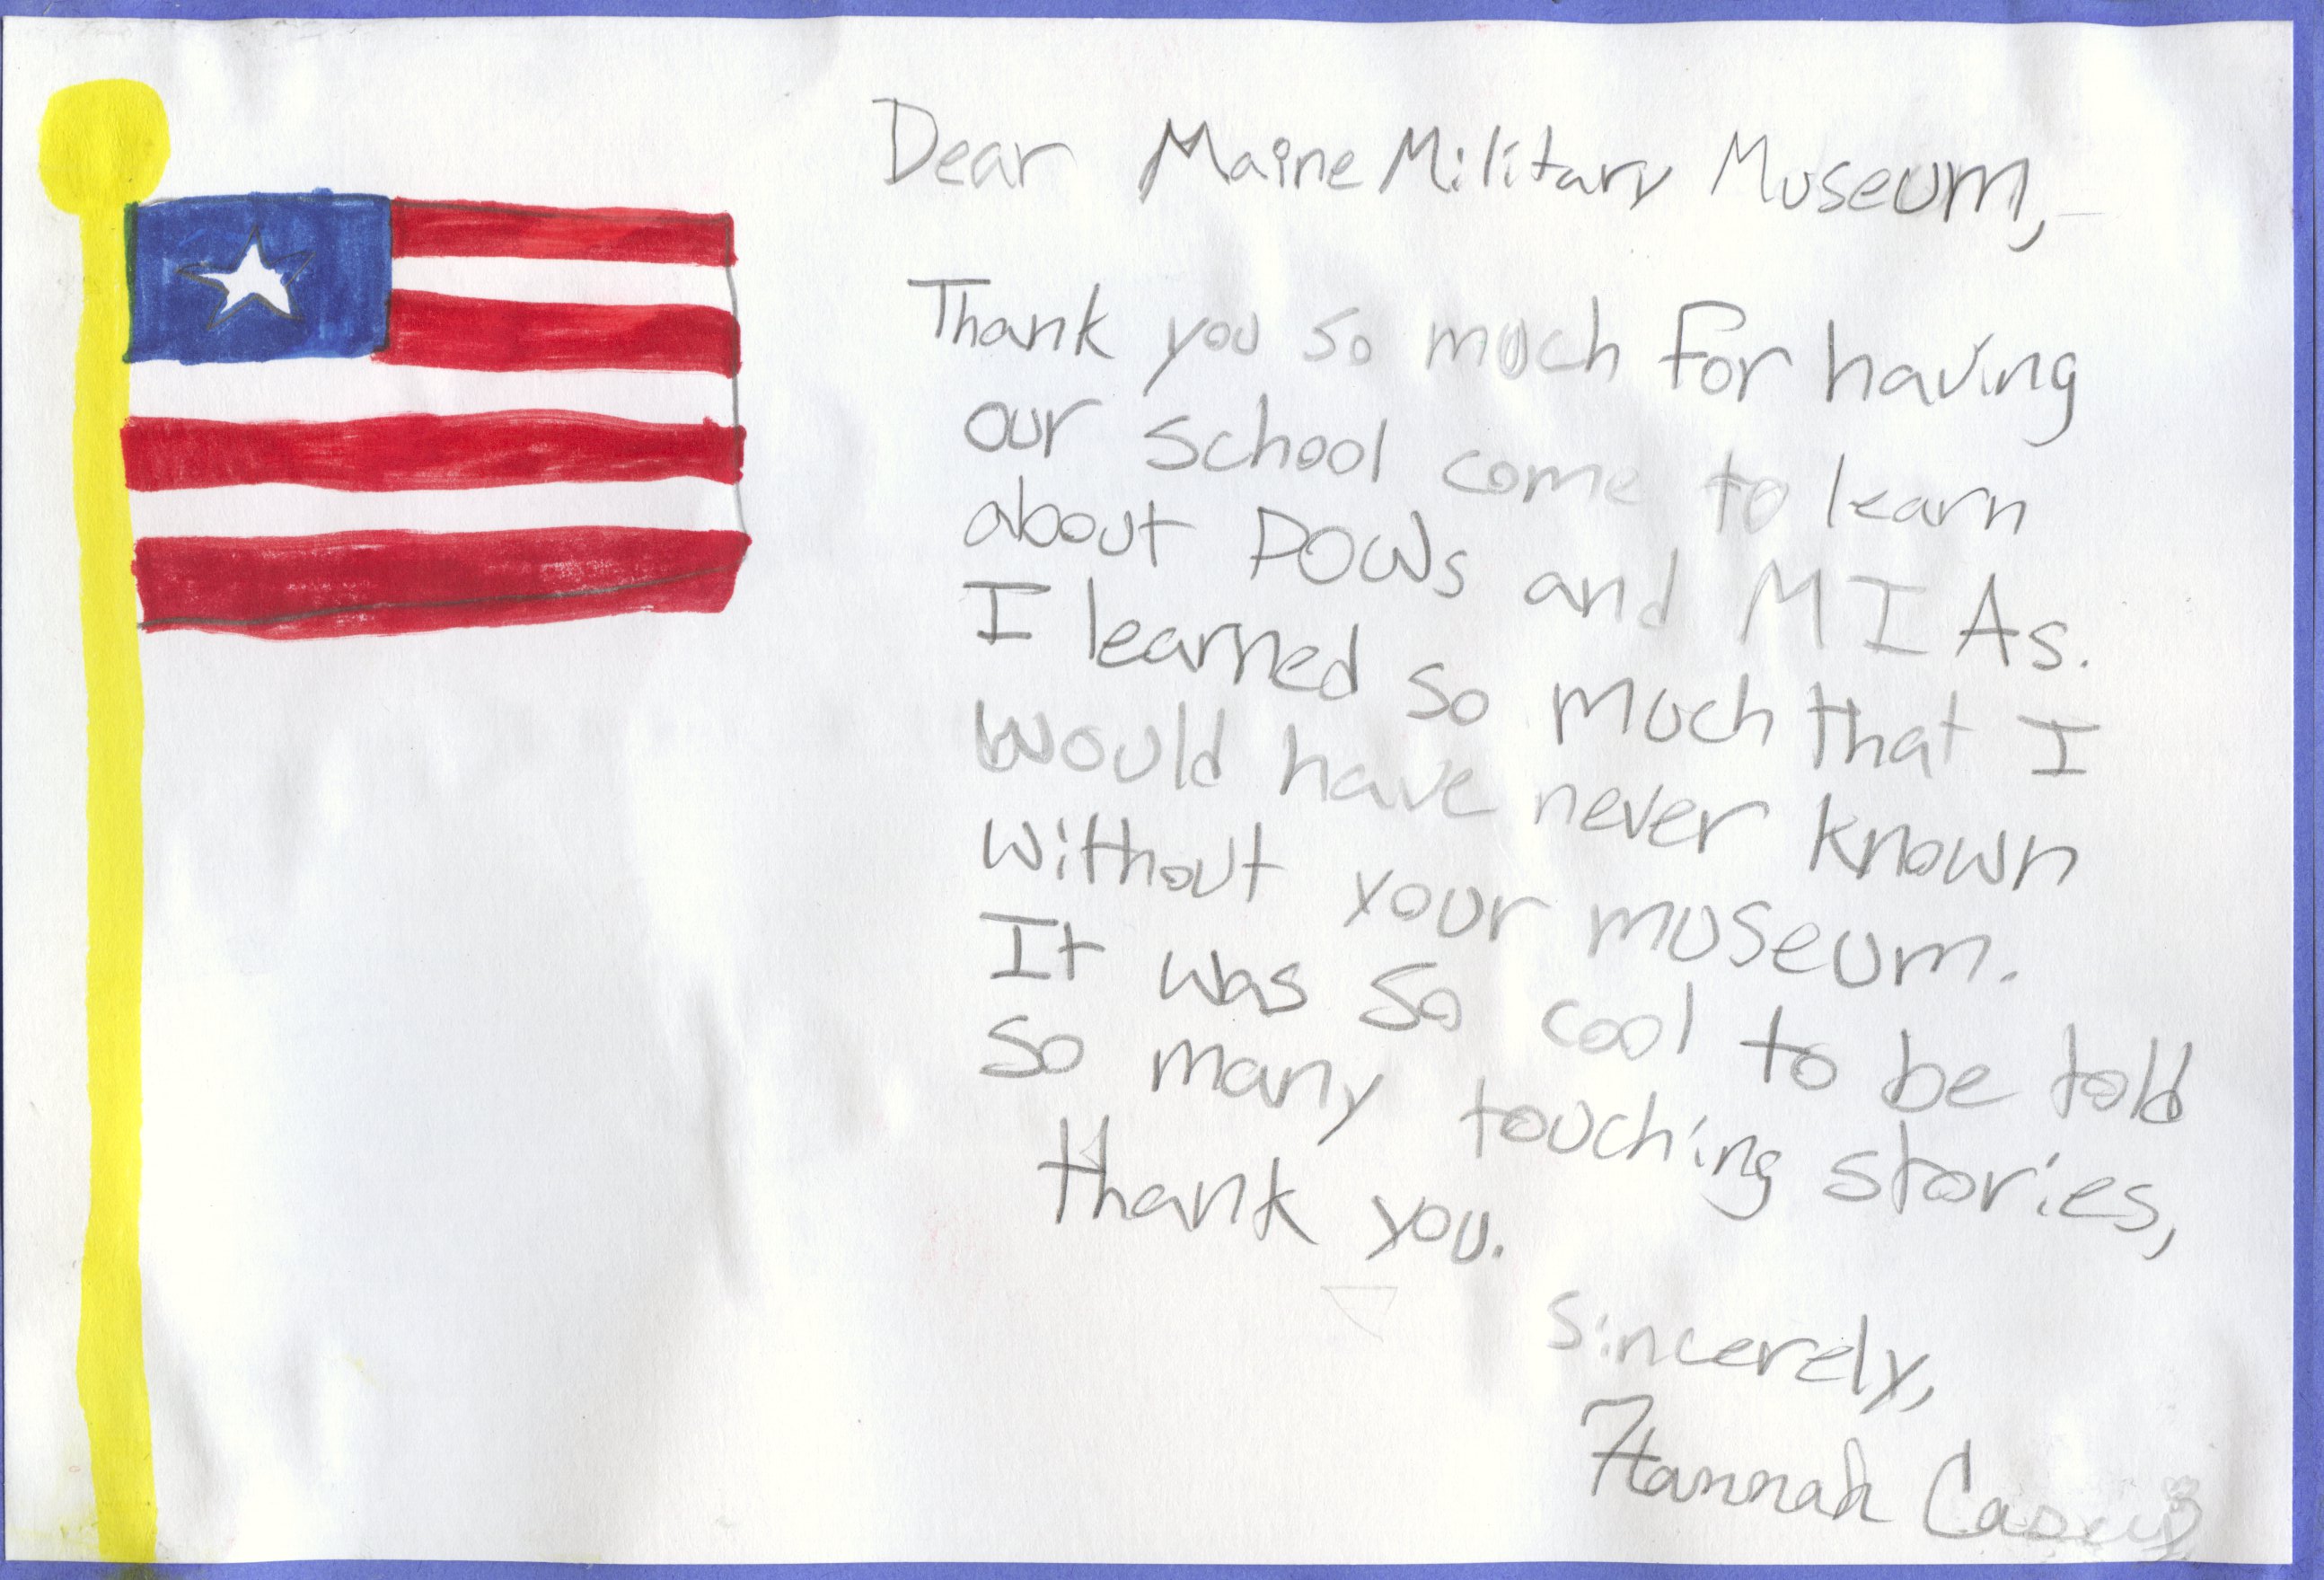 Dear Maine Military Museum,
Thank you so much for having
our school come to learn
about POWs and MIAs.
I learned so much that I
would have never known
without your museum.
It was so cool to be told
so many touching stories,
thank you.
Sincerely,
Hannah Casey